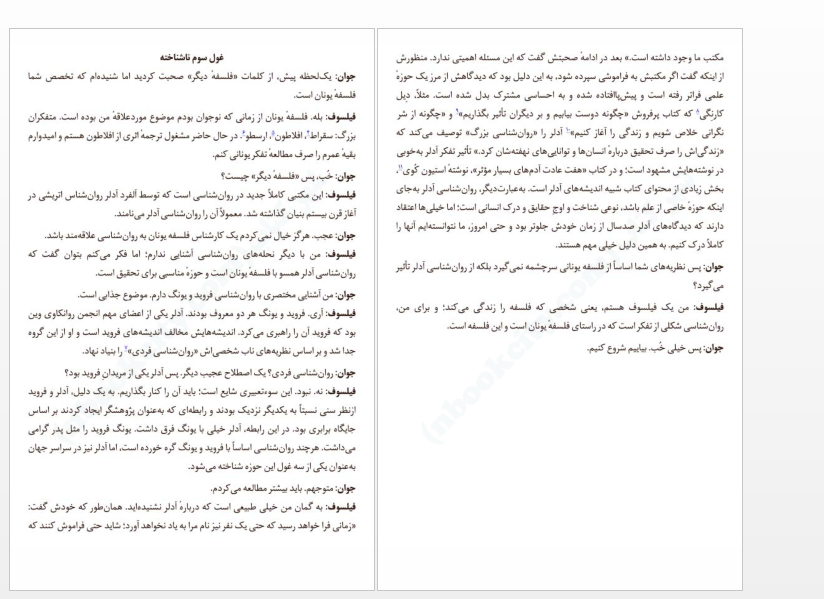 غول سوم ناشناخته
جوان: یک‌لحظه پیش، از کلمات «فلسفهٔ دیگر» صحبت کردید اما شنیده‌ام که تخصص شما
فلسفهٔ یونان است.
فیلسوف: بله. فلسفهٔ یونان از زمانی که نوجوان بودم موضوع موردعلاقهٔ من بوده است. متفکران
بزرگ: سقراط، افلاطون، ارسطو. در حال حاضر مشغول ترجمهٔ اثری از افلاطون هستم و امیدوارم
بقیهٔ عمرم را صرف مطالعهٔ تفکر یونانی کنم.
جوان: خُب، پس «فلسفهٔ دیگر» چیست؟
فیلسوف: این مکتبی کاملاً جدید در روان‌شناسی است که توسط آلفرد آدلر روان‌شناس اتریشی در
آغاز قرن بیستم بنیان گذاشته شد. معمولاً آن را روان‌شناسی آدلر می‌نامند.
جوان: عجب. هرگز خیال نمی‌کردم یک کارشناس فلسفه یونان به روان‌شناسی علاقه‌مند باشد.
فیلسوف: من با دیگر نحله‌های روان‌شناسی آشنایی ندارم؛ اما فکر می‌کنم بتوان گفت که
روان‌شناسی آدلر همسو با فلسفهٔ یونان است و حوزهٔ مناسبی برای تحقیق است.
جوان: من آشنایی مختصری با روان‌شناسی فروید و یونگ دارم. موضوع جذابی است.
فیلسوف: آری. فروید و یونگ هر دو معروف بودند. آدلر یکی از اعضای مهم انجمن روانکاوی وین
بود که فروید آن را راهبری می‌کرد. اندیشه‌هایش مخالف اندیشه‌های فروید است و او از این گروه
جدا شد و بر اساس نظریه‌های ناب شخصی‌اش «روان‌شناسی فردی» را بنیاد نهاد.
جوان: روان‌شناسی فردی؟ یک اصطلاح عجیب دیگر. پس آدلر یکی از مریدان فروید بود؟
فیلسوف: نه. نبود. این سوءتعبیری شایع است؛ باید آن را کنار بگذاریم. به یک دلیل، آدلر و فروید
ازنظر سنی نسبتاً به یکدیگر نزدیک بودند و رابطه‌ای که به‌عنوان پژوهشگر ایجاد کردند بر اساس
جایگاه برابری بود. در این رابطه، آدلر خیلی با یونگ فرق داشت. یونگ فروید را مثل پدر گرامی
می‌داشت. هرچند روان‌شناسی اساساً با فروید و یونگ گره خورده است، اما آدلر نیز در سراسر جهان
به‌عنوان یکی از سه غول این حوزه شناخته می‌شود.
جوان: متوجهم. باید بیشتر مطالعه می‌کردم.
فیلسوف: به گمان من خیلی طبیعی است که دربارهٔ آدلر نشنیده‌اید. همان‌طور که خودش گفت:
«زمانی فرا خواهد رسید که حتی یک نفر نیز نام مرا به یاد نخواهد آورد؛ شاید حتی فراموش کنند که
مکتب ما وجود داشته است.» بعد در ادامهٔ صحبتش گفت که این مسئله اهمیتی ندارد. منظورش
از اینکه گفت اگر مکتبش به فراموشی سپرده شود، به این دلیل بود که دیدگاهش از مرز یک حوزهٔ
علمی فراتر رفته است و پیش‌پاافتاده شده و به احساسی مشترک بدل شده است. مثلاً، دیل
کارنگی۸ که کتاب پرفروش «چگونه دوست بیابیم و بر دیگران تأثیر بگذاریم»۹ و «چگونه از شر
نگرانی خلاص شویم و زندگی را آغاز کنیم»۱۰ آدلر را «روان‌شناسی بزرگ» توصیف می‌کند که
«زندگی‌اش را صرف تحقیق دربارهٔ انسان‌ها و توانایی‌های نهفته‌شان کرد.» تأثیر تفکر آدلر به‌خوبی
در نوشته‌هایش مشهود است؛ و در کتاب «هفت عادت آدم‌های بسیار مؤثر»، نوشتهٔ استیون کَوی۱۱،
بخش زیادی از محتوای کتاب شبیه اندیشه‌های آدلر است. به‌عبارت‌دیگر، روان‌شناسی آدلر به‌جای
اینکه حوزهٔ خاصی از علم باشد، نوعی شناخت و اوج حقایق و درک انسانی است؛ اما خیلی‌ها اعتقاد
دارند که دیدگاه‌های آدلر صدسال از زمان خودش جلوتر بود و حتی امروز، ما نتوانسته‌ایم آنها را
کاملاً درک کنیم. به همین دلیل خیلی مهم هستند.
جوان: پس نظریه‌های شما اساساً از فلسفه یونانی سرچشمه نمی‌گیرد بلکه از روان‌شناسی آدلر تأثیر
می‌گیرد؟
فیلسوف: من یک فیلسوف هستم، یعنی شخصی که فلسفه را زندگی می‌کند؛ و برای من،
روان‌شناسی شکلی از تفکر است که در راستای فلسفهٔ یونان است و این فلسفه است.
جوان: پس خیلی خُب. بیاییم شروع کنیم.